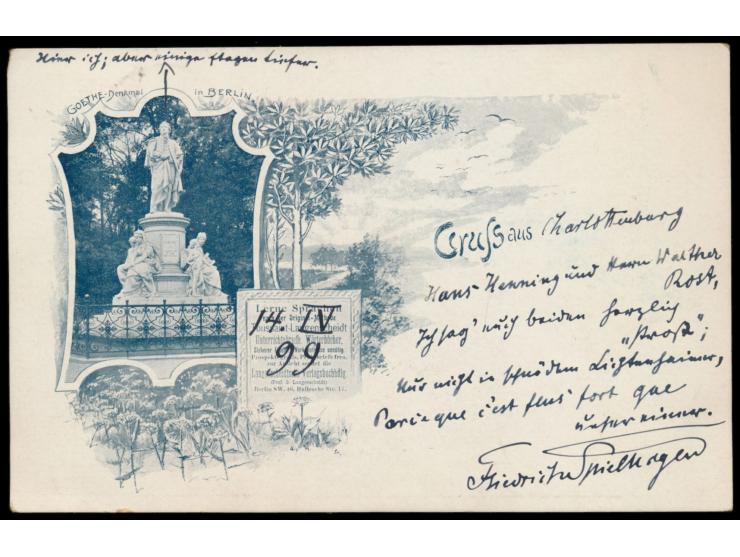 Hier ich; aber einige Etagen tiefer.
GOETHE-Denkmal in BERLIN
Gruss aus Charlottenburg
Hans Henning und Herrn Walther
Rost,
Ich sag' euch beiden herzlich
„Prost“;
Nur nicht in schnödem Lichtenheimer,
Parceque c'est plus fort que
unsereiner.
Friedrich Spielhagen
14 IV
99
Lerne Sprachen
Original-Methode
Toussaint-Langenscheidt
Unterrichtsbriefe, Wörterbücher,
Langenscheidtsche Verlagsbuchhdlg.
(Prof. G. Langenscheidt)
Berlin SW. 46, Hallesche Str. 17.